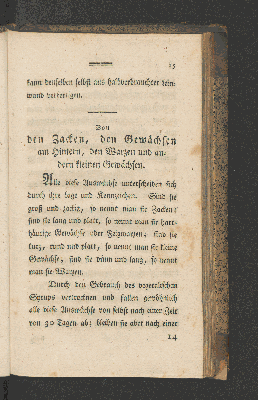 15
kann denselben selbst aus halbverbrauchter Lein-
wand verfertigen.
Von
den Zacken, den Gewächsen
am Hintern, den Warzen und an-
dern kleinen Gewächsen.
Alle diese Auswüchse unterscheiden sich
durch ihre Lage und Kennzeichen. Sind sie
groß und zackig, so nennt man sie Zacken;
sind sie lang und platt, so nennt man sie hart-
häutige Gewächse oder Feigwarzen; sind sie
kurz, rund und platt, so nennt man sie kleine
Gewächse; sind sie dünn und lang, so nennt
man sie Warzen.
Durch den Gebrauch des vegetalischen
Syrups vertrocknen und fallen gewöhnlich
alle diese Auswüchse von selbst nach einer Zeit
von 30 Tagen ab; bleiben sie aber nach einer
14